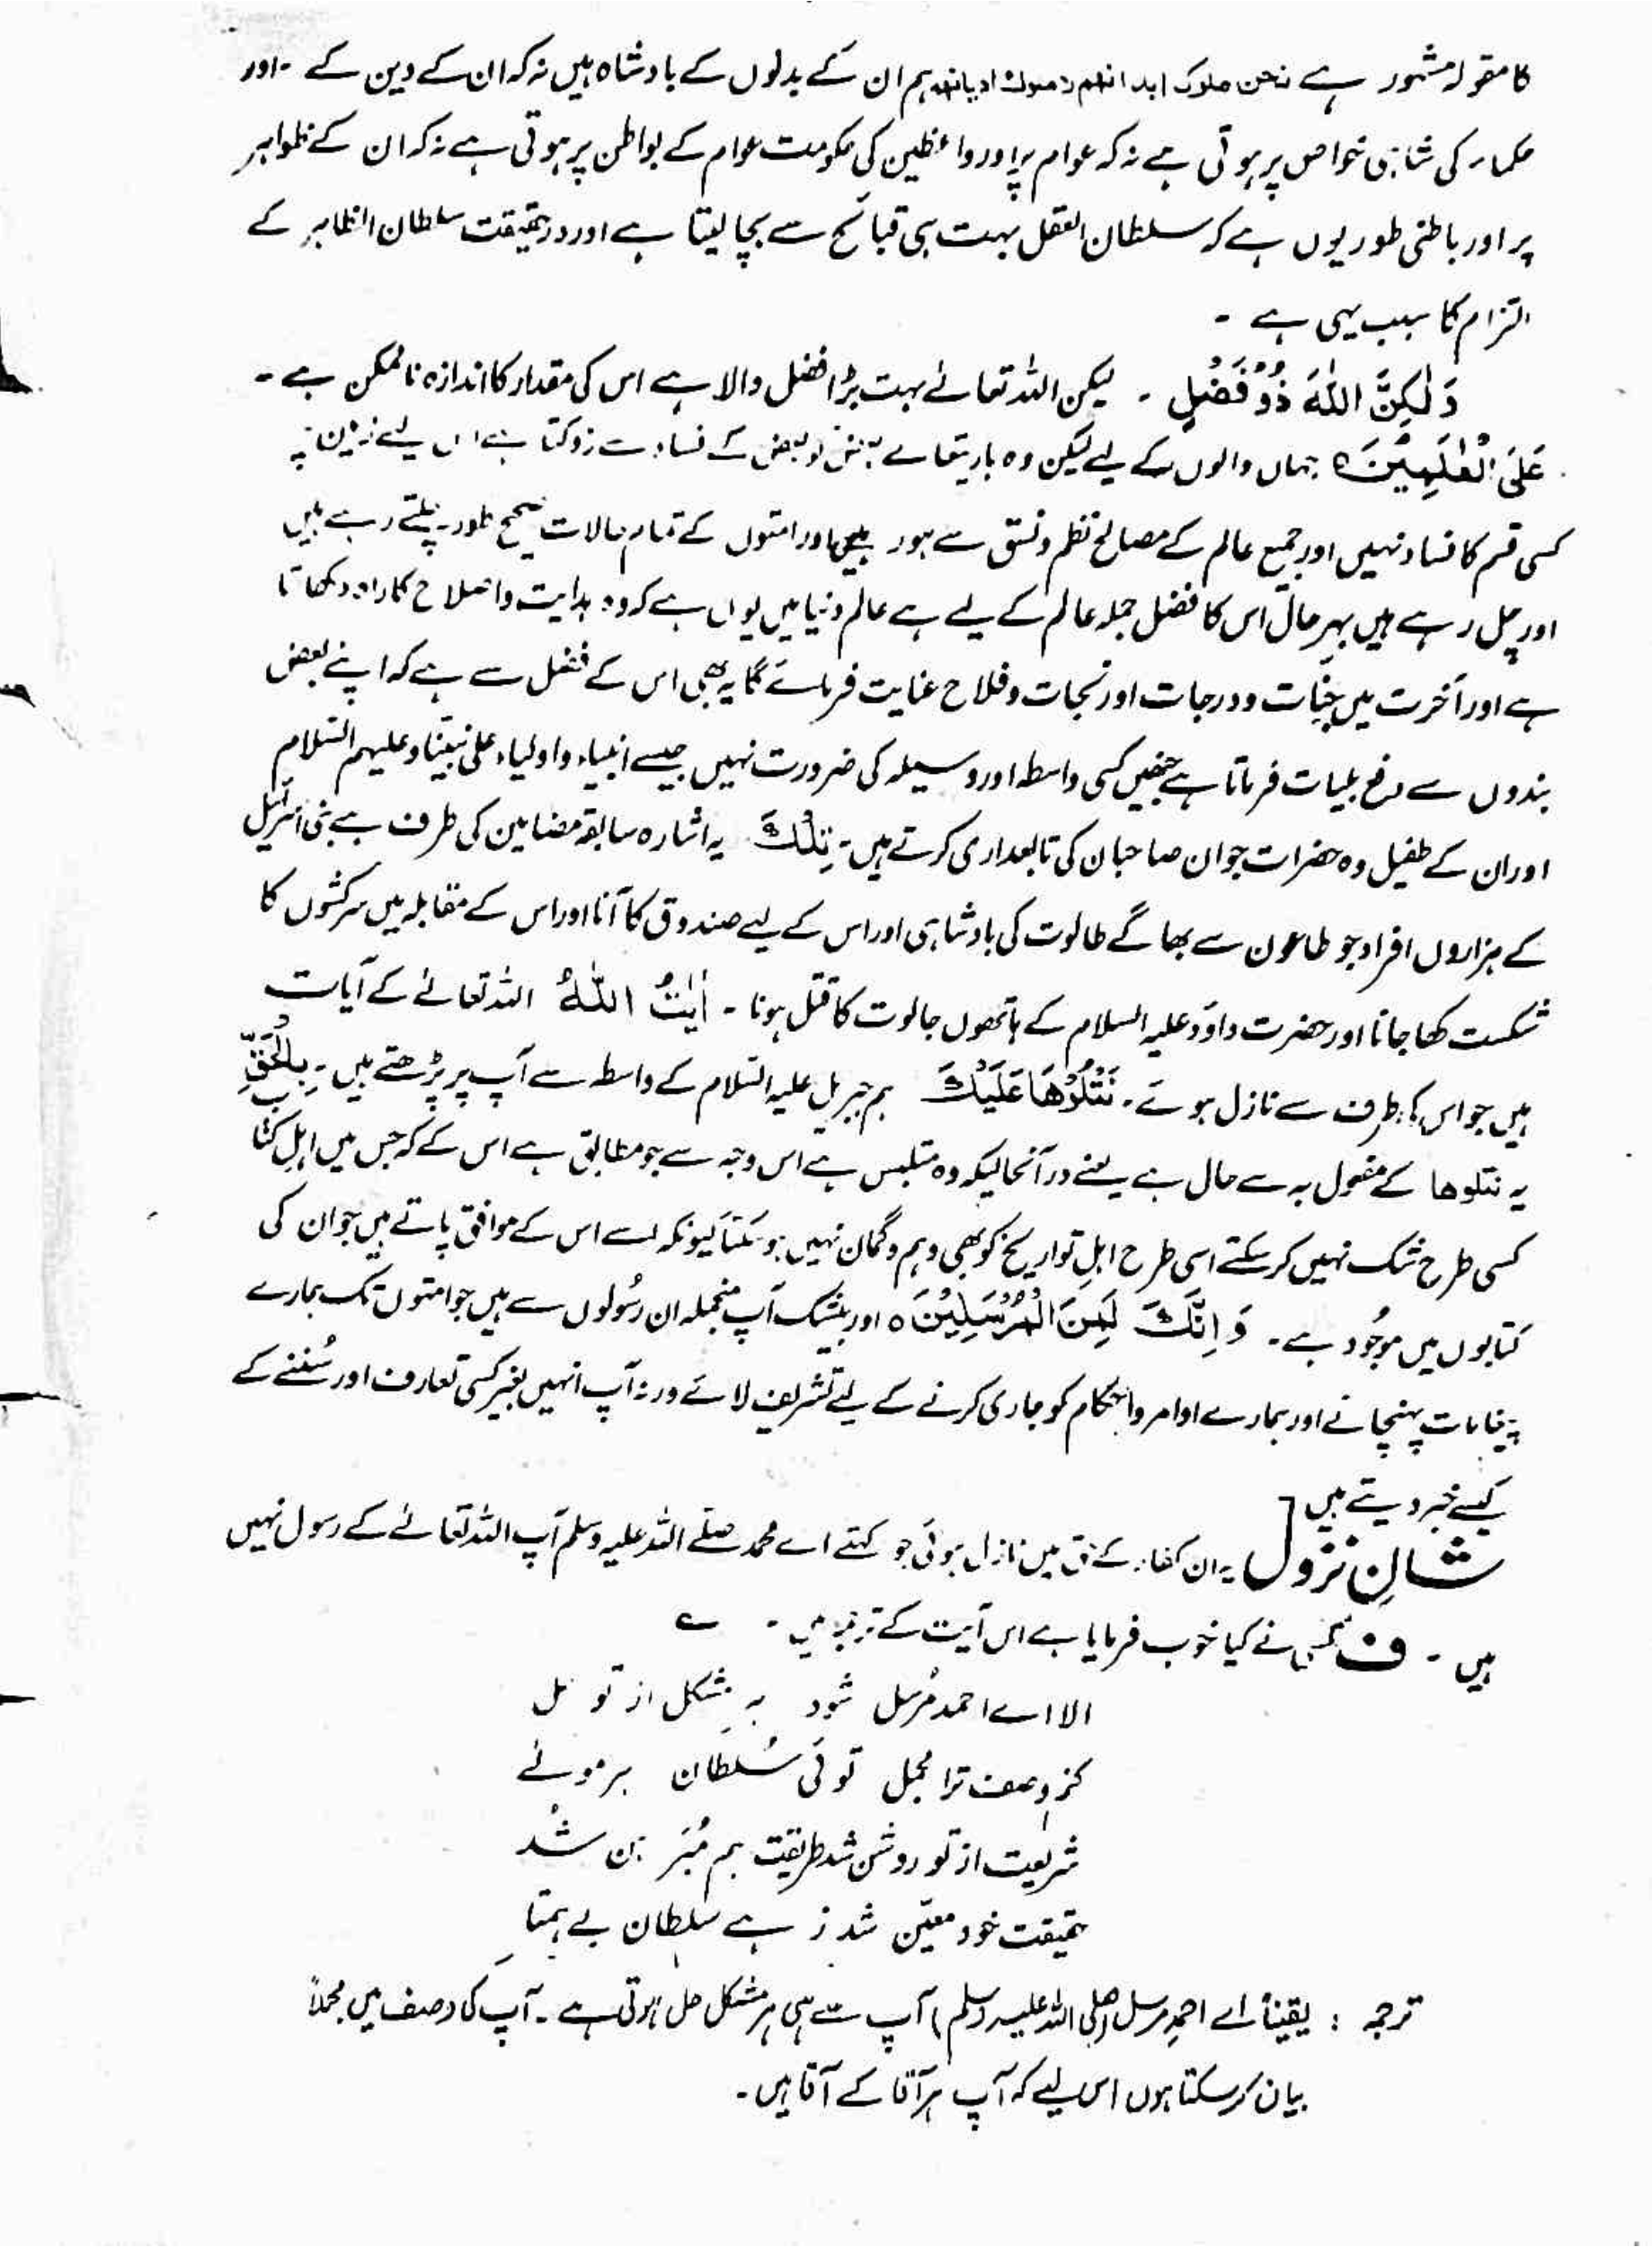 کا مقولہ مشہور ہے نحن ملوک ابدانهم ہم ان کے بدلوں کے بادشاہ ہیں نہ کہ ان کے دین کے ۔ اور
حکماء کی شاہی خواص پر ہوتی ہے نہ کہ عوام پر اور واعظین کی حکومت عوام کے بواطن پر ہوتی ہے نہ کہ ان کے ظواہر
پر اور باطنی طور یوں ہے کہ سلطان العقل بہت ہی قبائح سے بچا لیتا ہے اور درحقیقت سلطان الظاہر کے
التزام کا سبب یہی ہے ۔
وَلٰكِنَّ اللّٰهَ ذُوْ فَضْلٍ ۔ لیکن اللہ تعالےٰ بہت بڑا فضل والا ہے اس کی مقدار کا اندازہ ناممکن ہے ۔
عَلَى الْعٰلَمِيْنَ ٥ جہاں والوں کے لیے لیکن وہ باریتعالے بعض کو بعض کے فساد سے روکتا ہے اس لیے زمین پہ
کسی قسم کا فساد نہیں اور جمیع عالم کے مصالح نظم ونسق سے ہور ہیں اور امتوں کے تمام حالات صحیح طور پہ چلتے رہے ہیں
اور چل رہے ہیں بہرحال اس کا فضل جملہ عالم کے لیے ہے عالم دنیا میں یوں ہے کہ وہ ہدایت واصلاح کا راہ دکھاتا
ہے اور آخرت میں جنات ودرجات اور نجات وفلاح عنایت فرمائے گا یہ بھی اس کے فضل سے ہے کہ اپنے بعض
بندوں سے دفع بلیات فرماتا ہے جنھیں کسی واسطہ اور وسیلہ کی ضرورت نہیں جیسے انبیاء واولیاء علیٰ نبیّنا وعلیہم السّلام
اور ان کے طفیل وہ حضرات جو ان صاحبان کی تابعداری کرتے ہیں ۔ تِلْكَ یہ اشارہ سابقہ مضامین کی طرف ہے بنی اسرآئیل
کے ہزاروں افراد جو طاعون سے بھاگے طالوت کی بادشاہی اور اس کے لیے صندوق کا آنا اور اس کے مقابلہ میں سرکشوں کا
شکست کھا جانا اور حضرت داؤد علیہ السلام کے ہاتھوں جالوت کا قتل ہونا ۔ اٰيٰتُ اللّٰهِ اللہ تعالےٰ کے آیات
ہیں جو اس کی طرف سے نازل ہوئے ۔ نَتْلُوْهَا عَلَيْكَ ہم جبریل علیہ السّلام کے واسطہ سے آپ پر پڑھتے ہیں ۔ بِالْحَقِّ
یہ نتلوھا کے مفعول بہ سے حال ہے یعنے درآنحالیکہ وہ متلبس ہے اس وجہ سے جو مطابق ہے اس کے کہ جس میں اہلِ کتاب
کسی طرح شک نہیں کر سکتے اسی طرح اہلِ تواریخ کو بھی وہم وگمان نہیں ہو سکتا کیونکہ اسے اس کے موافق پاتے ہیں جو ان کی
کتابوں میں موجُود ہے ۔ وَاِنَّكَ لَمِنَ الْمُرْسَلِيْنَ ٥ اور بیشک آپ منجملہ ان رسُولوں سے ہیں جو امتوں تک ہمارے
پیغامات پہنچانے اور ہمارے اوامر واحکام کو جاری کرنے کے لیے تشریف لائے ورنہ آپ انہیں بغیر کسی تعارف اور سُننے کے
کیسے خبر دیتے ہیں
شانِ نزول یہ ان کفار کے حق میں نازل ہوئی جو کہتے اے محمد صلّے اللہ علیہ وسلم آپ اللہ تعالےٰ کے رسول نہیں
ہیں ۔ ف کسی نے کیا خوب فرمایا ہے اس آیت کے ترجمہ میں ۔ ے
الا اے احمد مُرسل شود ہر مشکل از تو حل
کنم وصف ترا مجمل توئی سُلطان ہر مولے
شریعت از تو روشن شد طریقت ہم مُبَرہن شُد
حقیقت خود معیّن شد زہے سُلطان بے ہمتا
ترجمہ : یقیناً اے احمدِ مرسل (صلی اللہ علیہ وسلم) آپ سے ہی ہر مشکل حل ہوتی ہے ۔ آپ کی وصف میں مجملاً
بیان کر سکتا ہوں اس لیے کہ آپ ہر آقا کے آقا ہیں ۔